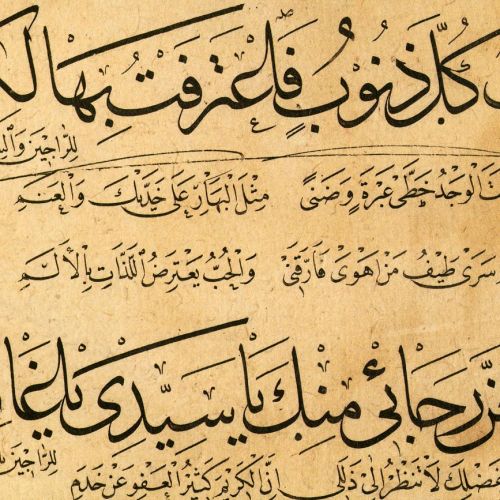 كُلّ ذنُوبٍ فَاعترفتُ بِهَا
لِلرَّاجِينَ
الْوَجْدُ خَطَّىْ عَبْرَةٍ وَضَنىً مِثْلَ الْبَهَارِ عَلَى خَدَّيْكَ وَالْعَنَمِ
سَرَى طَيْفُ مَنْ اَهْوَى فَارَّقَنِى وَالْحُبُّ يَعْتَرِضُ اللَّذَّاتِ بِالْاَلَمِ
رَجَائِي مِنكَ يَا سَيِّدِى يَا
لِلرَّاجِينَ
لَا تَنْظُرْ اِلَى ذَلَلِى اِنَّ الْكَرِيمَ كَثِيرُ الْعَفْوِ عَنْ خَدَمِ